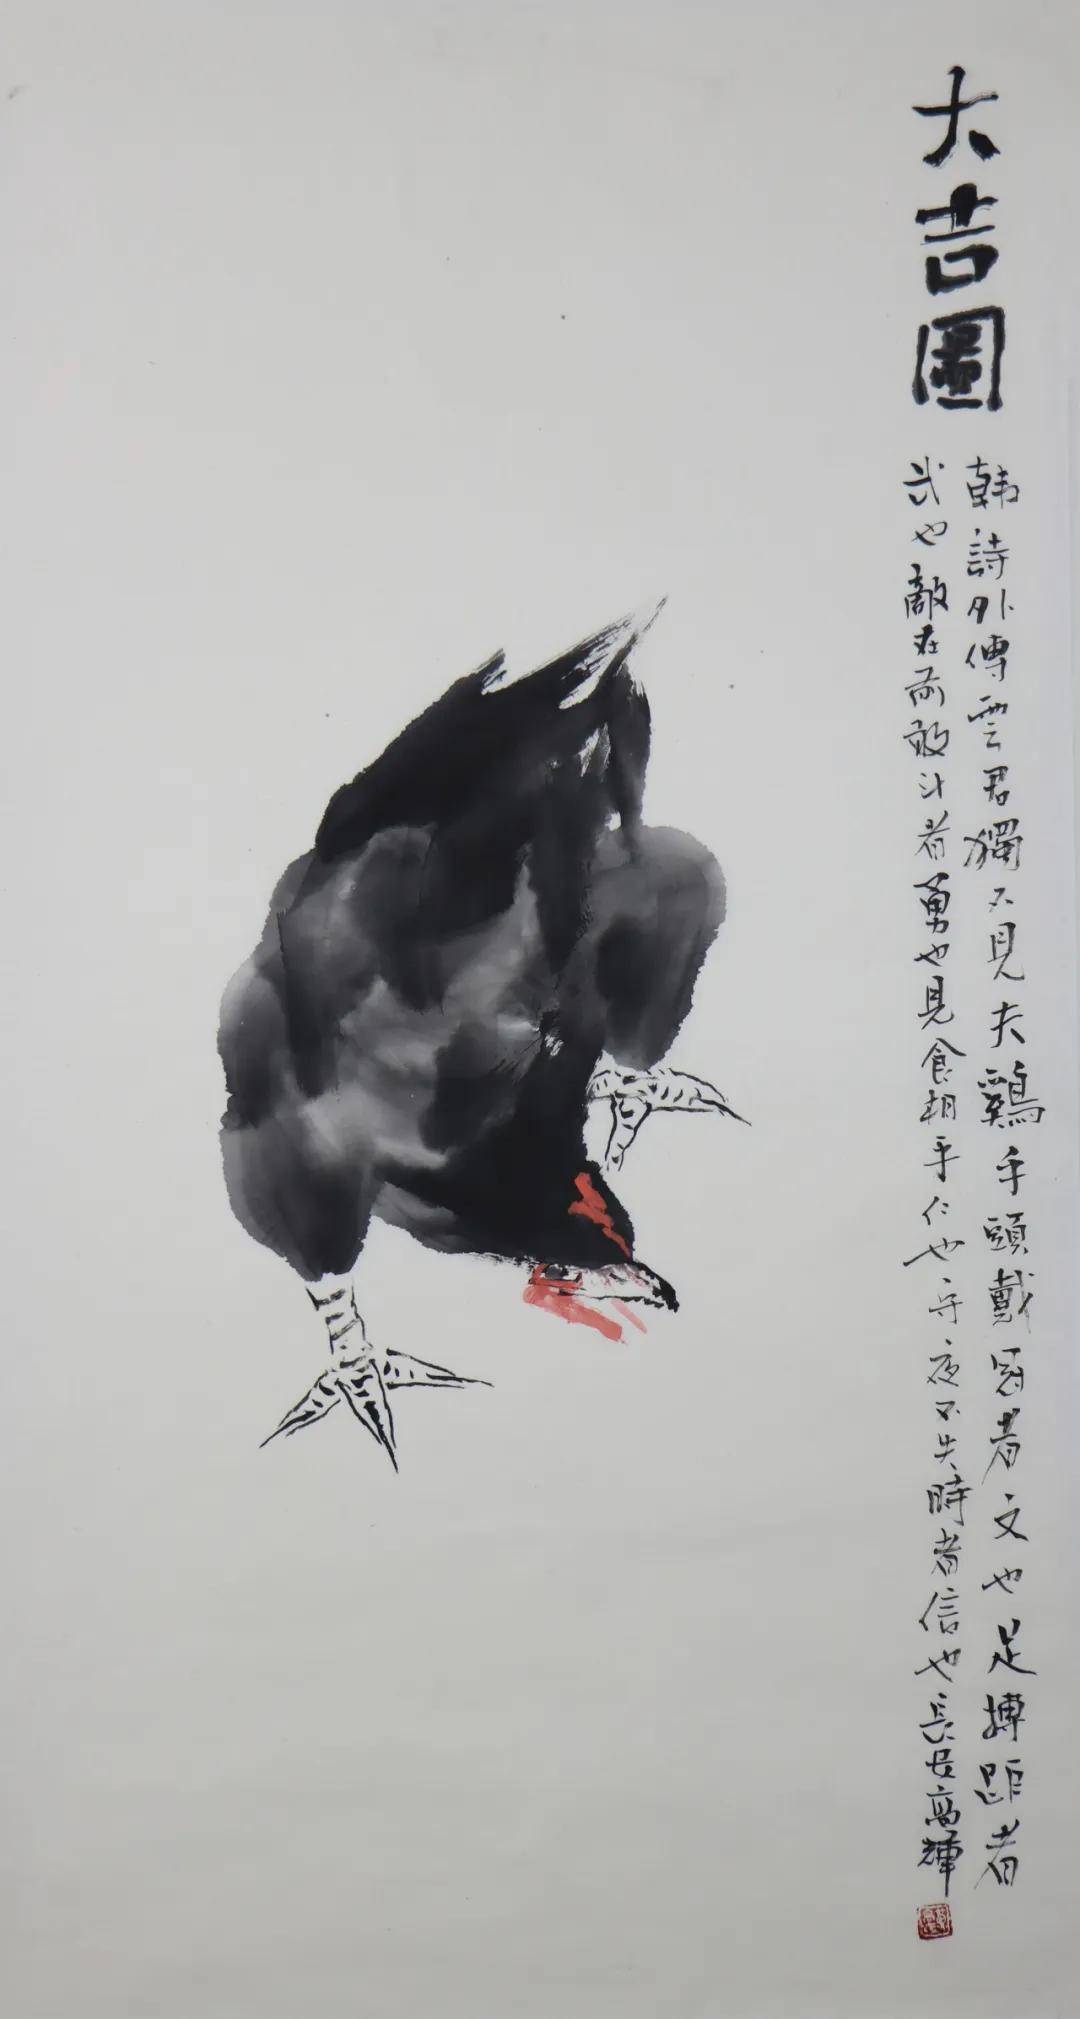 大吉圖
韓詩外傳雲君獨不見夫鷄乎頭戴冠者文也足搏距者
武也敵在前敢斗者勇也見食相乎仁也守夜不失時者信也長安高輝